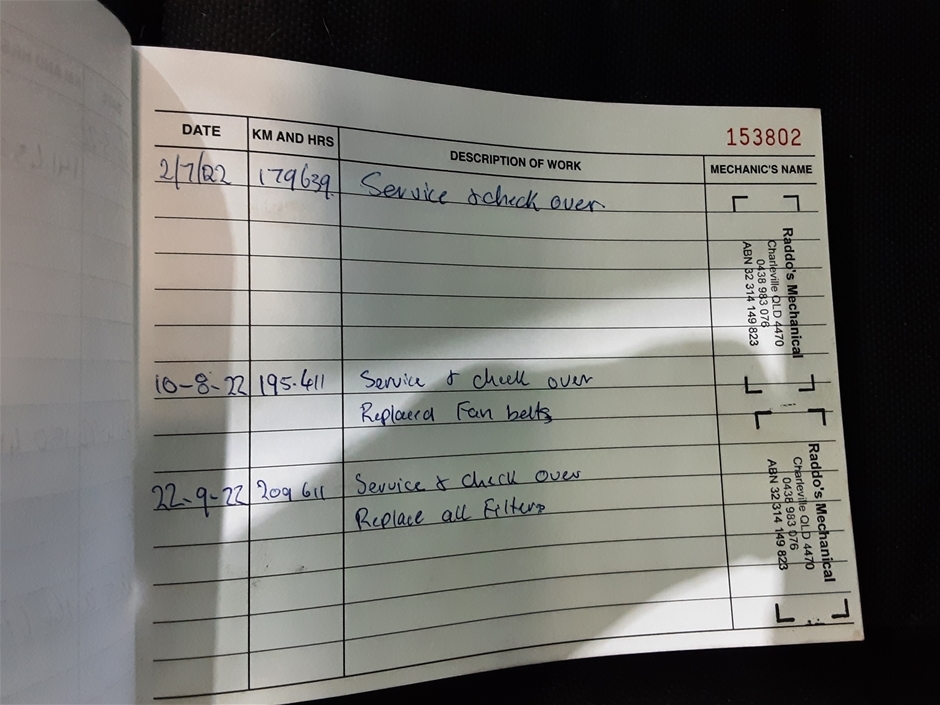 153802
DATE KM AND HRS DESCRIPTION OF WORK MECHANIC'S NAME
2/7/22 179639 Service & check over
Raddo's Mechanical
Charleville QLD 4470
0438 983 076
ABN 32 314 149 823
10-8-22 195.411 Service & check over
Replaced Fan belts
22-9-22 209611 Service & check over
Replace all Filters
Raddo's Mechanical
Charleville QLD 4470
0438 983 076
ABN 32 314 149 823